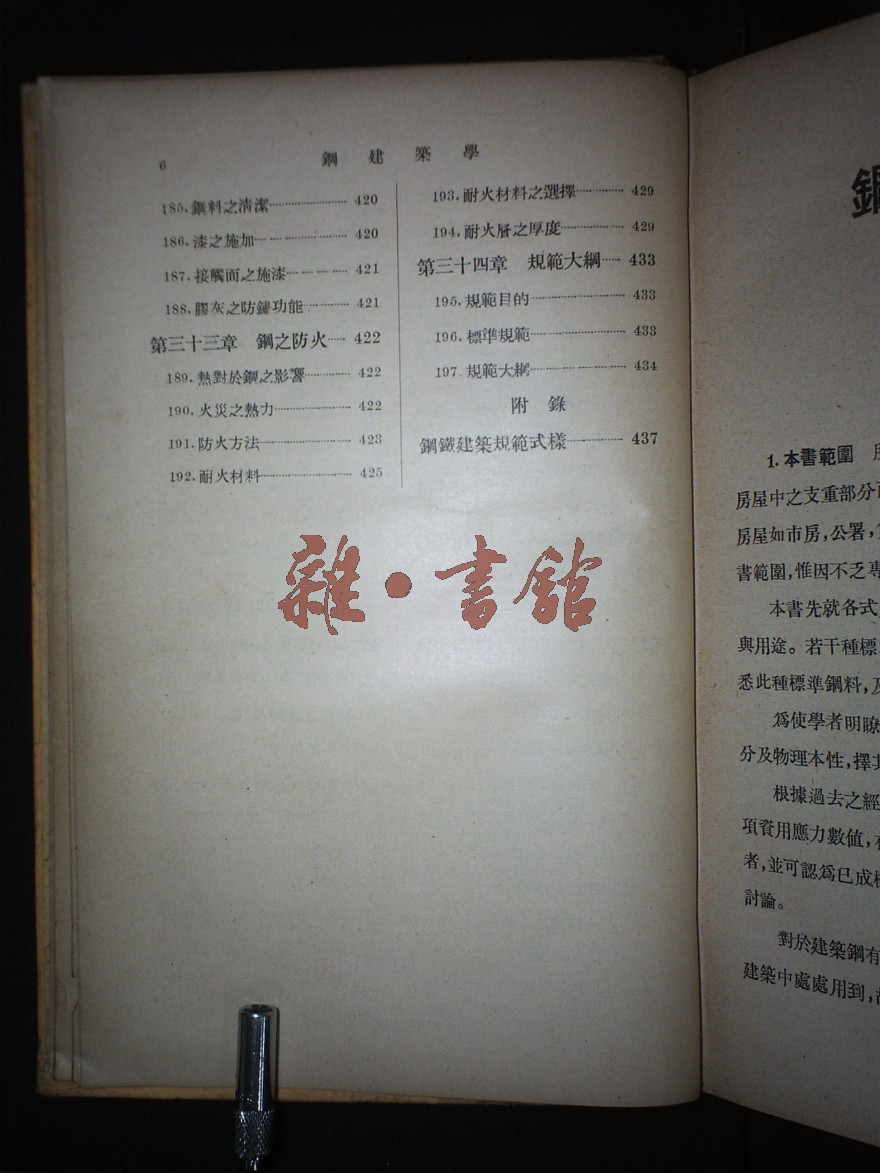 6 鋼建築學
185. 鋼料之清潔 420
186. 漆之施加 420
187. 接觸面之施漆 421
188. 膠灰之防鏽功能 421
第三十三章 鋼之防火 422
189. 熱對於鋼之影響 422
190. 火災之熱力 422
191. 防火方法 423
192. 耐火材料 425
193. 耐火材料之選擇 429
194. 耐火層之厚度 429
第三十四章 規範大綱 433
195. 規範目的 433
196. 標準規範 433
197. 規範大綱 434
附錄
鋼鐵建築規範式樣 437
雜·書館
鋼
1. 本書範圍
房屋中之支重部分
房屋如市房，公署，
書範圍，惟因不乏專
本書先就各式
與用途。若干種標
悉此種標準鋼料，及
爲使學者明瞭
分及物理本性，擇其
根據過去之經
項資用應力數值，
者，並可認爲已成標
討論。
對於建築鋼有
建築中處處用到，